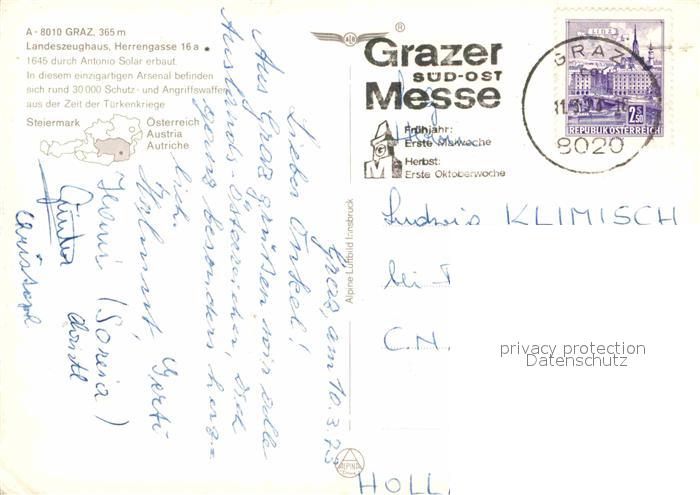 A - 8010 GRAZ, 365 m
Landeszeughaus, Herrengasse 16 a
1645 durch Antonio Solar erbaut.
In diesem einzigartigen Arsenal befinden
sich rund 30 000 Schutz- und Angriffswaffen
aus der Zeit der Türkenkriege
Steiermark
Österreich
Austria
Autriche
Graz, am 10.3.73
Lieber Onkel!
Aus Graz grüßen wir alle
Auslands-Österreicher, Dich
ganz besonders herz-
lich.
Helmut Gerti
(Soreia)
Christl
Günter
Alpine Luftbild Innsbruck
ALPINA
®
Grazer
SÜD-OST
Messe
Frühjahr:
Erste Maiwoche
Herbst:
Erste Oktoberwoche
LINZ
2.50
REPUBLIK ÖSTERREICH
GRAZ
8020
Ludwig KLIMISCH
bei
C.N.
HOLL
privacy protection
Datenschutz